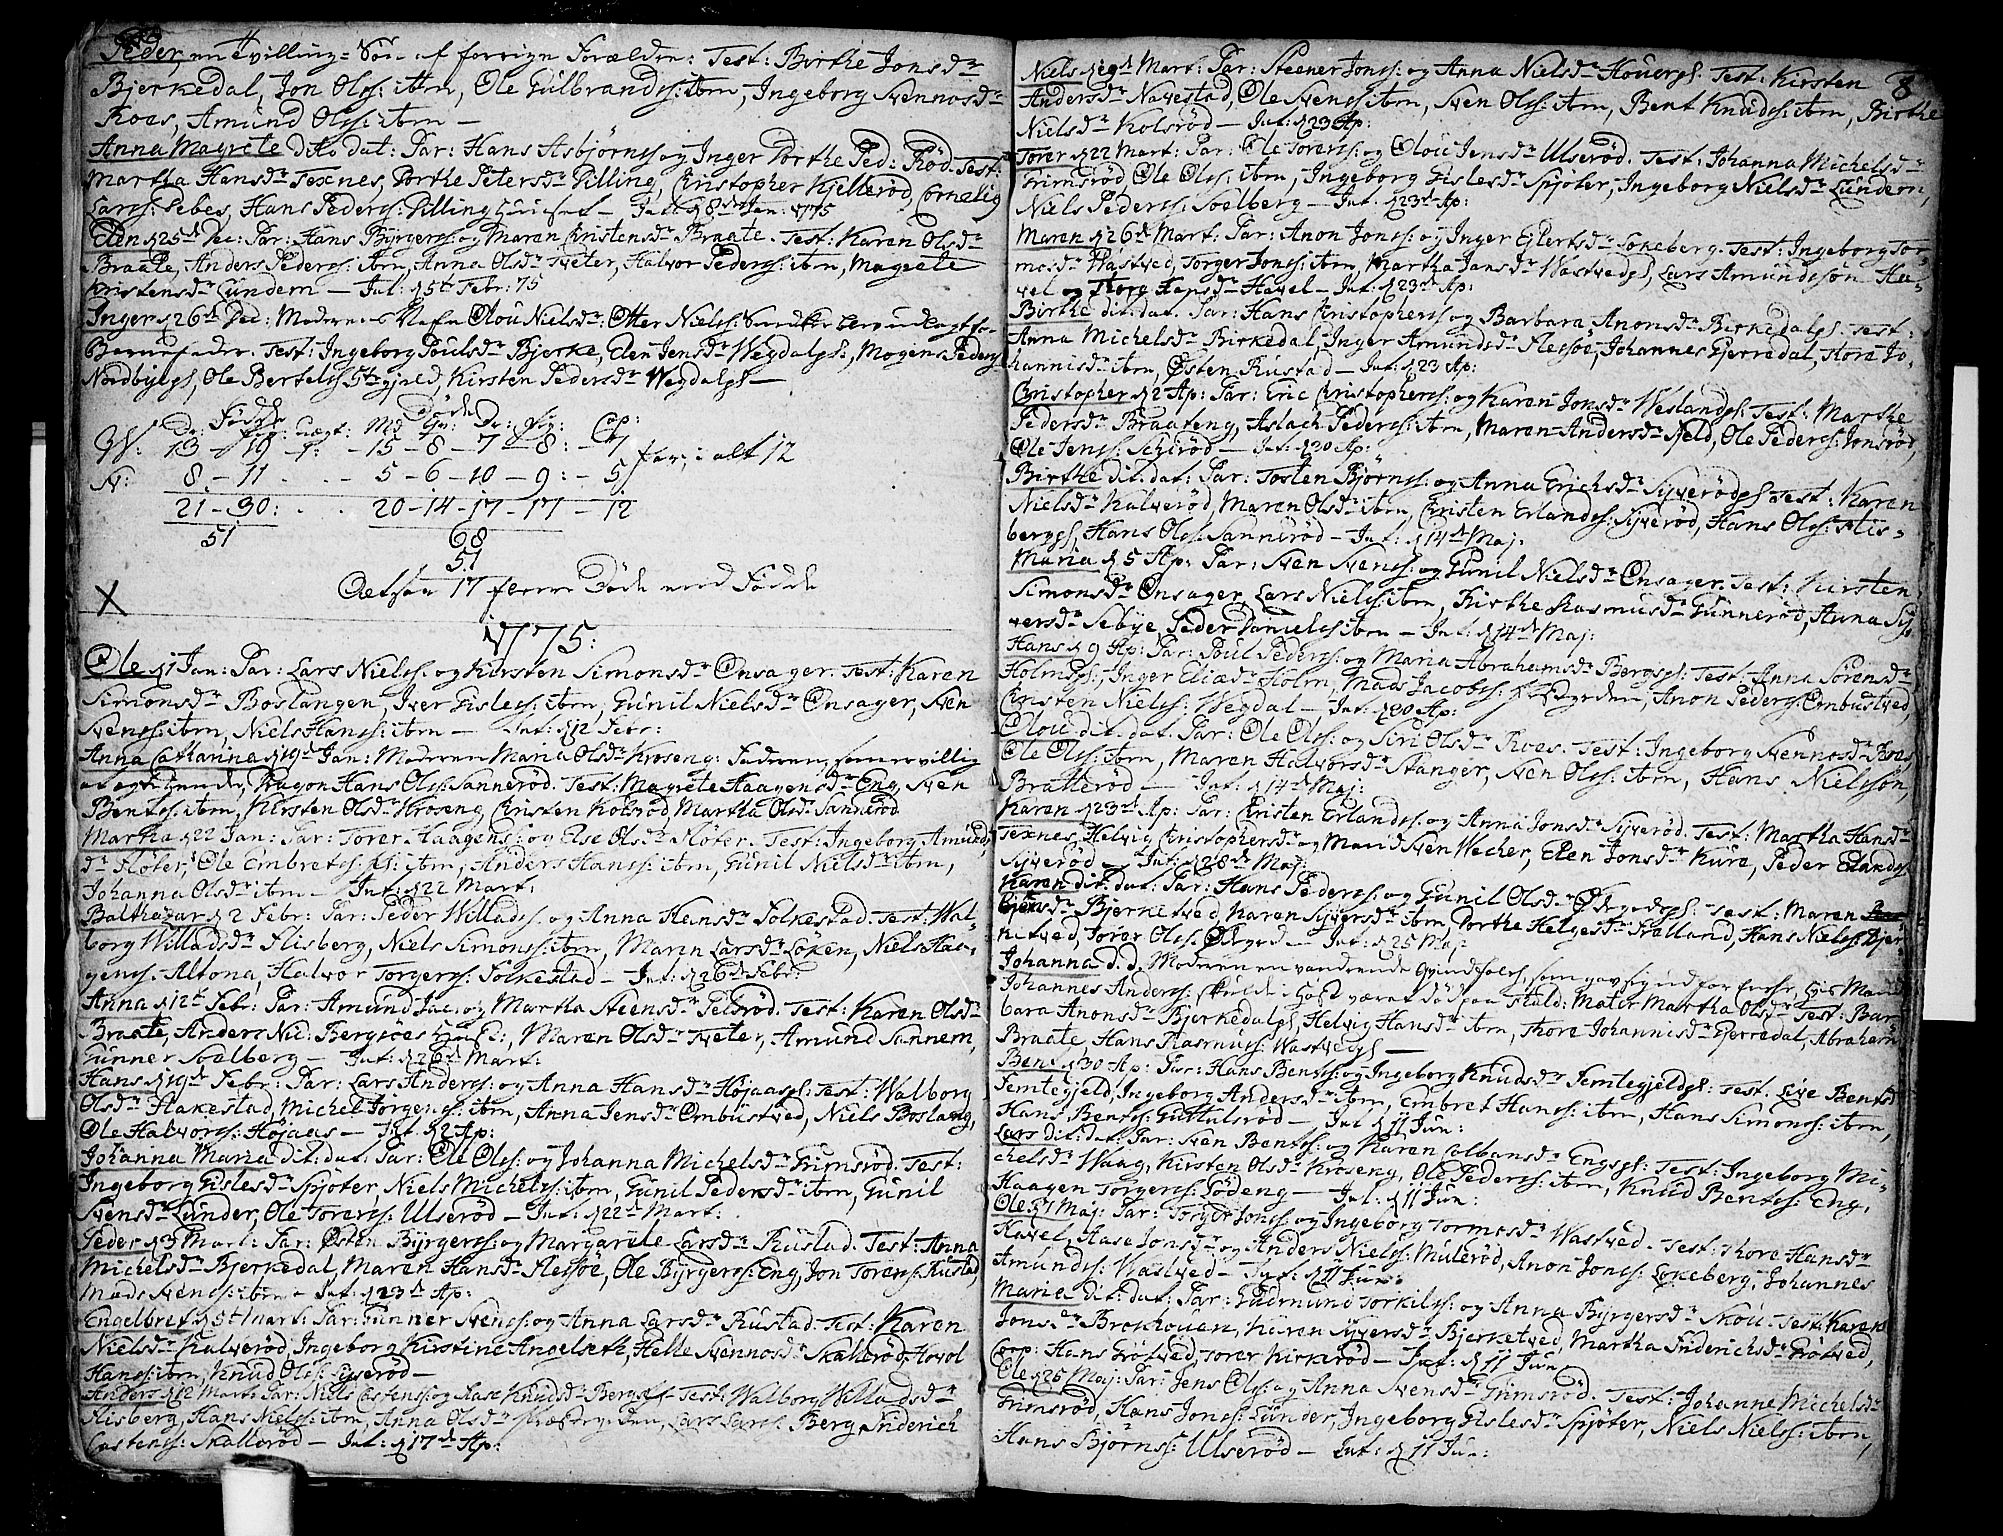 Peder, en Tvilling-Søn af forrige Forældre: Test: Birthe Jonsdr
Bjerkedal, Jon Olss: ibm, Ole Gulbrandss: ibm, Ingeborg Svennosdr
Roes, Amund Olss: ibm —
Anna Magrete dito dat: Par: Hans Asbjørnss og Inger Dorthe Ped: Rød. Test:
Martha Hansdr Texnes, Dorthe Petersdr Dilling, Christopher Kjellerød, Cornelig
Larss: Sebye, Hans Peders: Dilling — Int: d 8de Jan: 1775
Elen d 25d Dec: Par: Hans Byrgerss: og Maren Christensdr Braate. Test: Karen Olsdr
Braate, Anders Pederss: ibm, Anna Olsdr Tveter, Halvor Pederss: ibm, Magrete
Christensdr Lundem — Int: d 5t Febr: 75
Inger d 26d Dec: Moderens Nafn Olou Nielsdr: Otter Nielss: udlagt for
Barnefader. Test: Ingeborg Poulsdr Bjerke, Elen Jensdr Wegdalps:, Mogens Peders:
Nordbyeps, Ole Bertelss Stengjeld, Kirsten Pedersdr Wegdalps —
Fødde Døde
Dr: Pig: uegt: Md Qv: Dr: Pig: Cop:
W: 13 - 19 - 1: - 15 - 8 - 7 - 8: - 7
N: 8 - 11 . . - 5 - 6 - 10 - 9: - 5 Par, i alt 12
21 - 30: . . 20 - 14 - 17 - 17 - 12
51 68
51
Altsaa 17 fleere Døde end Fødde
X
1775:
Ole d 1 Jan: Par: Lars Nielss: og Kirsten Simonsdr Onsager. Test: Karen
Simonsdr Boslangen, Iver Gisless: ibm, Gunil Nielsdr Onsager, Sven
Svenss: ibm, Niels Hanss: ibm — Int: d 12 Febr:
Anna Cathanina d 19d Jan: Moderen Maria Olsdr Kroseng: Faderen, som er villig
at egte hende, Dragon Hans Olss Sannerød. Test: Magrete Haagensdr Eng, Sven
Bentss: ibm, Kirsten Olsdr Kroseng, Christen Kolsrød, Martha Olsdr Sannerød
Martha d 22 Jan: Par: Torer Haagens: og Else Olsdr Fløter. Test: Ingeborg Amunds
dr Fløter, Ole Embretss: ps: ibm, Anders Hanss: ibm, Gunil Nielsdr ibm,
Johanna Olsdr ibm — Int: d 22 Mart:
Balthazar d 2 Febr: Par: Peder Willadss. og Anna Hansdr Folkestad. Test: Wal-
borg Willadsdr Flisberg, Niels Simonss: ibm, Maren Larsdr Løken, Niels Haa-
gens. Altona, Halvor Torgerss: Folkestad — Int: d 26d Febr:
Anna d 12t Febr: Par: Amund Jac: og Martha Steensdr Pelsrød. Test: Karen Olsdr
Braate, Anders Nic: Bergsøes, Maren Olsdr Tveter, Amund Sannem,
Gunner Soelberg — Int: d 26d Mart:
Hans d 19d Febr: Par: Lars Anderss: og Anna Hansdr Højaasps: Test: Walborg
Olsdr Hakestad, Michel Jørgenss: ibm, Anna Jensdr Ombustved, Niels Boslang,
Ole Halvorss: Højaas — Int: d 2 Ap:
Johanna Maria dit: dat: Par: Ole Olss: og Johanna Michelsdr Grimsrød. Test:
Ingeborg Gislesdr Spjøter, Niels Michelss: ibm, Gunil Pedersdr ibm, Gunil
Svensdr Lunder, Ole Torerss: Ulserød — Int: d 22d Mart:
Peder d 3 Mart: Par: Østen Byrgerss: og Margarete Larsdr Rustad. Test: Anna
Michelsdr Bjerkedal, Maren Hansdr Flessøe, Ole Byrgerss: Eng, Jon Torens: Rustad
Mads Svenss: ibm — Int: d 23d Ap:
Engelbret d 5t Mart: Par: Gunner Svenss: og Anna Larsdr Rustad. Test: Karen
Nielsdr Kalverød, Ingeborg Kirstine Angelseth, Helle Svennosdr Skallerød, Hovol
Hanss: ibm, Knud Olss:
Anders d 12 Mart: Par: Niels Castenss: og Aase Knudsdr Bergsps Test: Walborg Willadsdr
Flisberg, Hans Nielss: ibm, Anna Olsdr, Lars Larss: Berg, Friderich
Castenss: Skallerød — Int: d 17d Ap:
8
Niels d 19d Mart: Par: Steener Jonss: og Anna Nielsdr Houergs: Test: Kirsten
Andersdr Navestad, Ole Svenss ibm, Sven Olss: ibm, Bent Knudss: ibm, Birthe
Nielsdr Kolsrød — Int: d 23 Ap:
Torer d 22 Mart: Par: Ole Torerss: og Olou Jensdr Ulserød. Test: Johanna Michelsdr
Grimsrød, Ole Olss: ibm, Ingeborg Gislesdr Spjøter, Ingeborg Nielsdr Lundem,
Niels Pederss: Soelberg — Int: d 23d Ap:
Maren d 26d Mart: Par: Anon Jonss: og Inger Ejlertsdr Løkeberg. Test: Ingeborg Tor-
mosdr Wastved, Torger Jonss: ibm, Martha Jansdr Wastvedps, Lars Amundssøn Ha-
vel og Thore Hansdr Havel — Int: d 23d Ap:
Birthe dit: dat. Par: Hans Christopherss og Barbara Anonsdr Birkedalps: Test:
Anna Michelsdr Birkedal, Inger Amundsdr Flessøe, Johannes Gjerredal, Thore Jo-
hannisdr ibm, Østen Rustad — Int: d 23 Ap:
Christopher d 2 Ap: Par: Eric Christopherss: og Karen Jonsdr Westands: Test: Marthe
Pedersdr Braateng, Aslach Pederss: ibm, Maren Andersdr Fjeld, Ole Pederss: Jonsrød,
Ole Jenss: — Int: d 20 Ap:
Birthe dit: dat: Par: Tosten Bjørnss: og Anna Erichsdr Syverødps Test: Karen
Nielsdr Kalverød, Maren Olsdr ibm, Christen Erlandss: Syverød, Hans Olss: Flis-
bergs, Hans Olss: Sannerød — Int: d 14d Maj:
Maria d 5 Ap: Par: Sven Svenss: og Gunil Nielsdr Onsager. Test: Kirsten
Simonsdr Onsager, Lars Nielss: ibm, Birthe Rasmusdr Gunnerød, Anna Sy-
versdr Sebye Peder Danielss ibm — Int: d 14d Maj:
Hans d 9 Ap: Par: Poul Pederss: og Maria Abrahamsdr Bergsps: Test: Anna Sørensdr
Holmsps:, Inger Eliædr Holm, Mads Jacobss:, Anon Peders: Ombustved,
Christen Nielss: Wegdal — Int: d 30 Ap:
Olou dit: dat: Par: Ole Olss: og Siri Olsdr Roes. Test: Ingeborg Svennosdr Roes,
Ole Olss: ibm, Maren Halvorsdr Stanger, Sven Olss: ibm, Hans Nielssøn,
Bratterød — Int: d 14d Maj:
Karen d 23d Ap: Par: Christen Erlandss: og Anna Jonsdr Syverød. Test: Martha Hansdr
Texnes, Helvig Christophersdr og Mand Sven Wecher, Elen Jonsdr Kure, Peder Erlandss
Syverød — Int: d 28d Maj:
Karen dit: dat: Par: Hans Pederss: og Gunil Olsdr: Test: Maren
Bjørnsdr Bjerketved, Karen Syversdr ibm, Dorthe Helgesdr Fralland, Hans Nielss Bjer-
ketved, Torer Olss. Ødegrd — Int: d 25 Maj:
Johanna d. d. Moderen en vandrende Qvindfolch, som gav sig ud for Enche, his Mand
Johannes Anderss: skulde i Høst været død paa Hald: Mater Martha Olsdr Test: Bar-
bara Anonsdr Bjerkedalps, Helvig Hansdr ibm, Thore Johannisdr Gjerredal, Abraham
Braate, Hans Rasmuss: Wastvedps —
Bent d 30 Ap: Par: Hans Bentss: og Ingeborg Knudsdr Femtegjeldps: Test: Live Bentsdr
Femtegjeld, Ingeborg Andersdr ibm, Embret Hanss: ibm, Hans Simonss: ibm,
Hans Bentss: Guttulsrød — Int d 11 Jun:
Lars dit: dat: Par: Sven Bentss: og Karen Colbansdr Engsps: Test: Ingeborg Mi-
chelsdr Waag, Kirsten Olsdr Kroseng, Ole Pederss: ibm, Knud Bentss: Eng,
Haagen Torgerss: Gødeng — Int: d 11 Jun:
Ole d 7 Maj: Par: Torgr Jonss: og Ingeborg Tormosdr Wastved. Test: Thore Hansdr
Havel, Aase Jonsdr og Anders Nielss: Mulerød, Anon Jonss: Løkeberg, Johannes
Amundss: Wastved — Int: d 11 Jun:
Marie dit: dat: Par: Gudmund Torkilss: og Anna Byrgersdr Skou: Test: Karen
Jonsdr Brokhouen, Karen Syversdr Bjerketved, Martha Friderichsdr Grøtved,
Corp: Hans Grøtved, Torer Kirkerød — Int: d 11 Jun
Ole d 25 Maj: Par: Jens Olss: og Anna Svensdr Grimsrød. Test: Johanne Michelsdr
Grimsrød, Hans Jonss: Lunder, Ingeborg Gislesdr Spjøter, Niels Nielss: ibm,
Hans Bjørnss: Ulserød — Int: d 11 Jun: